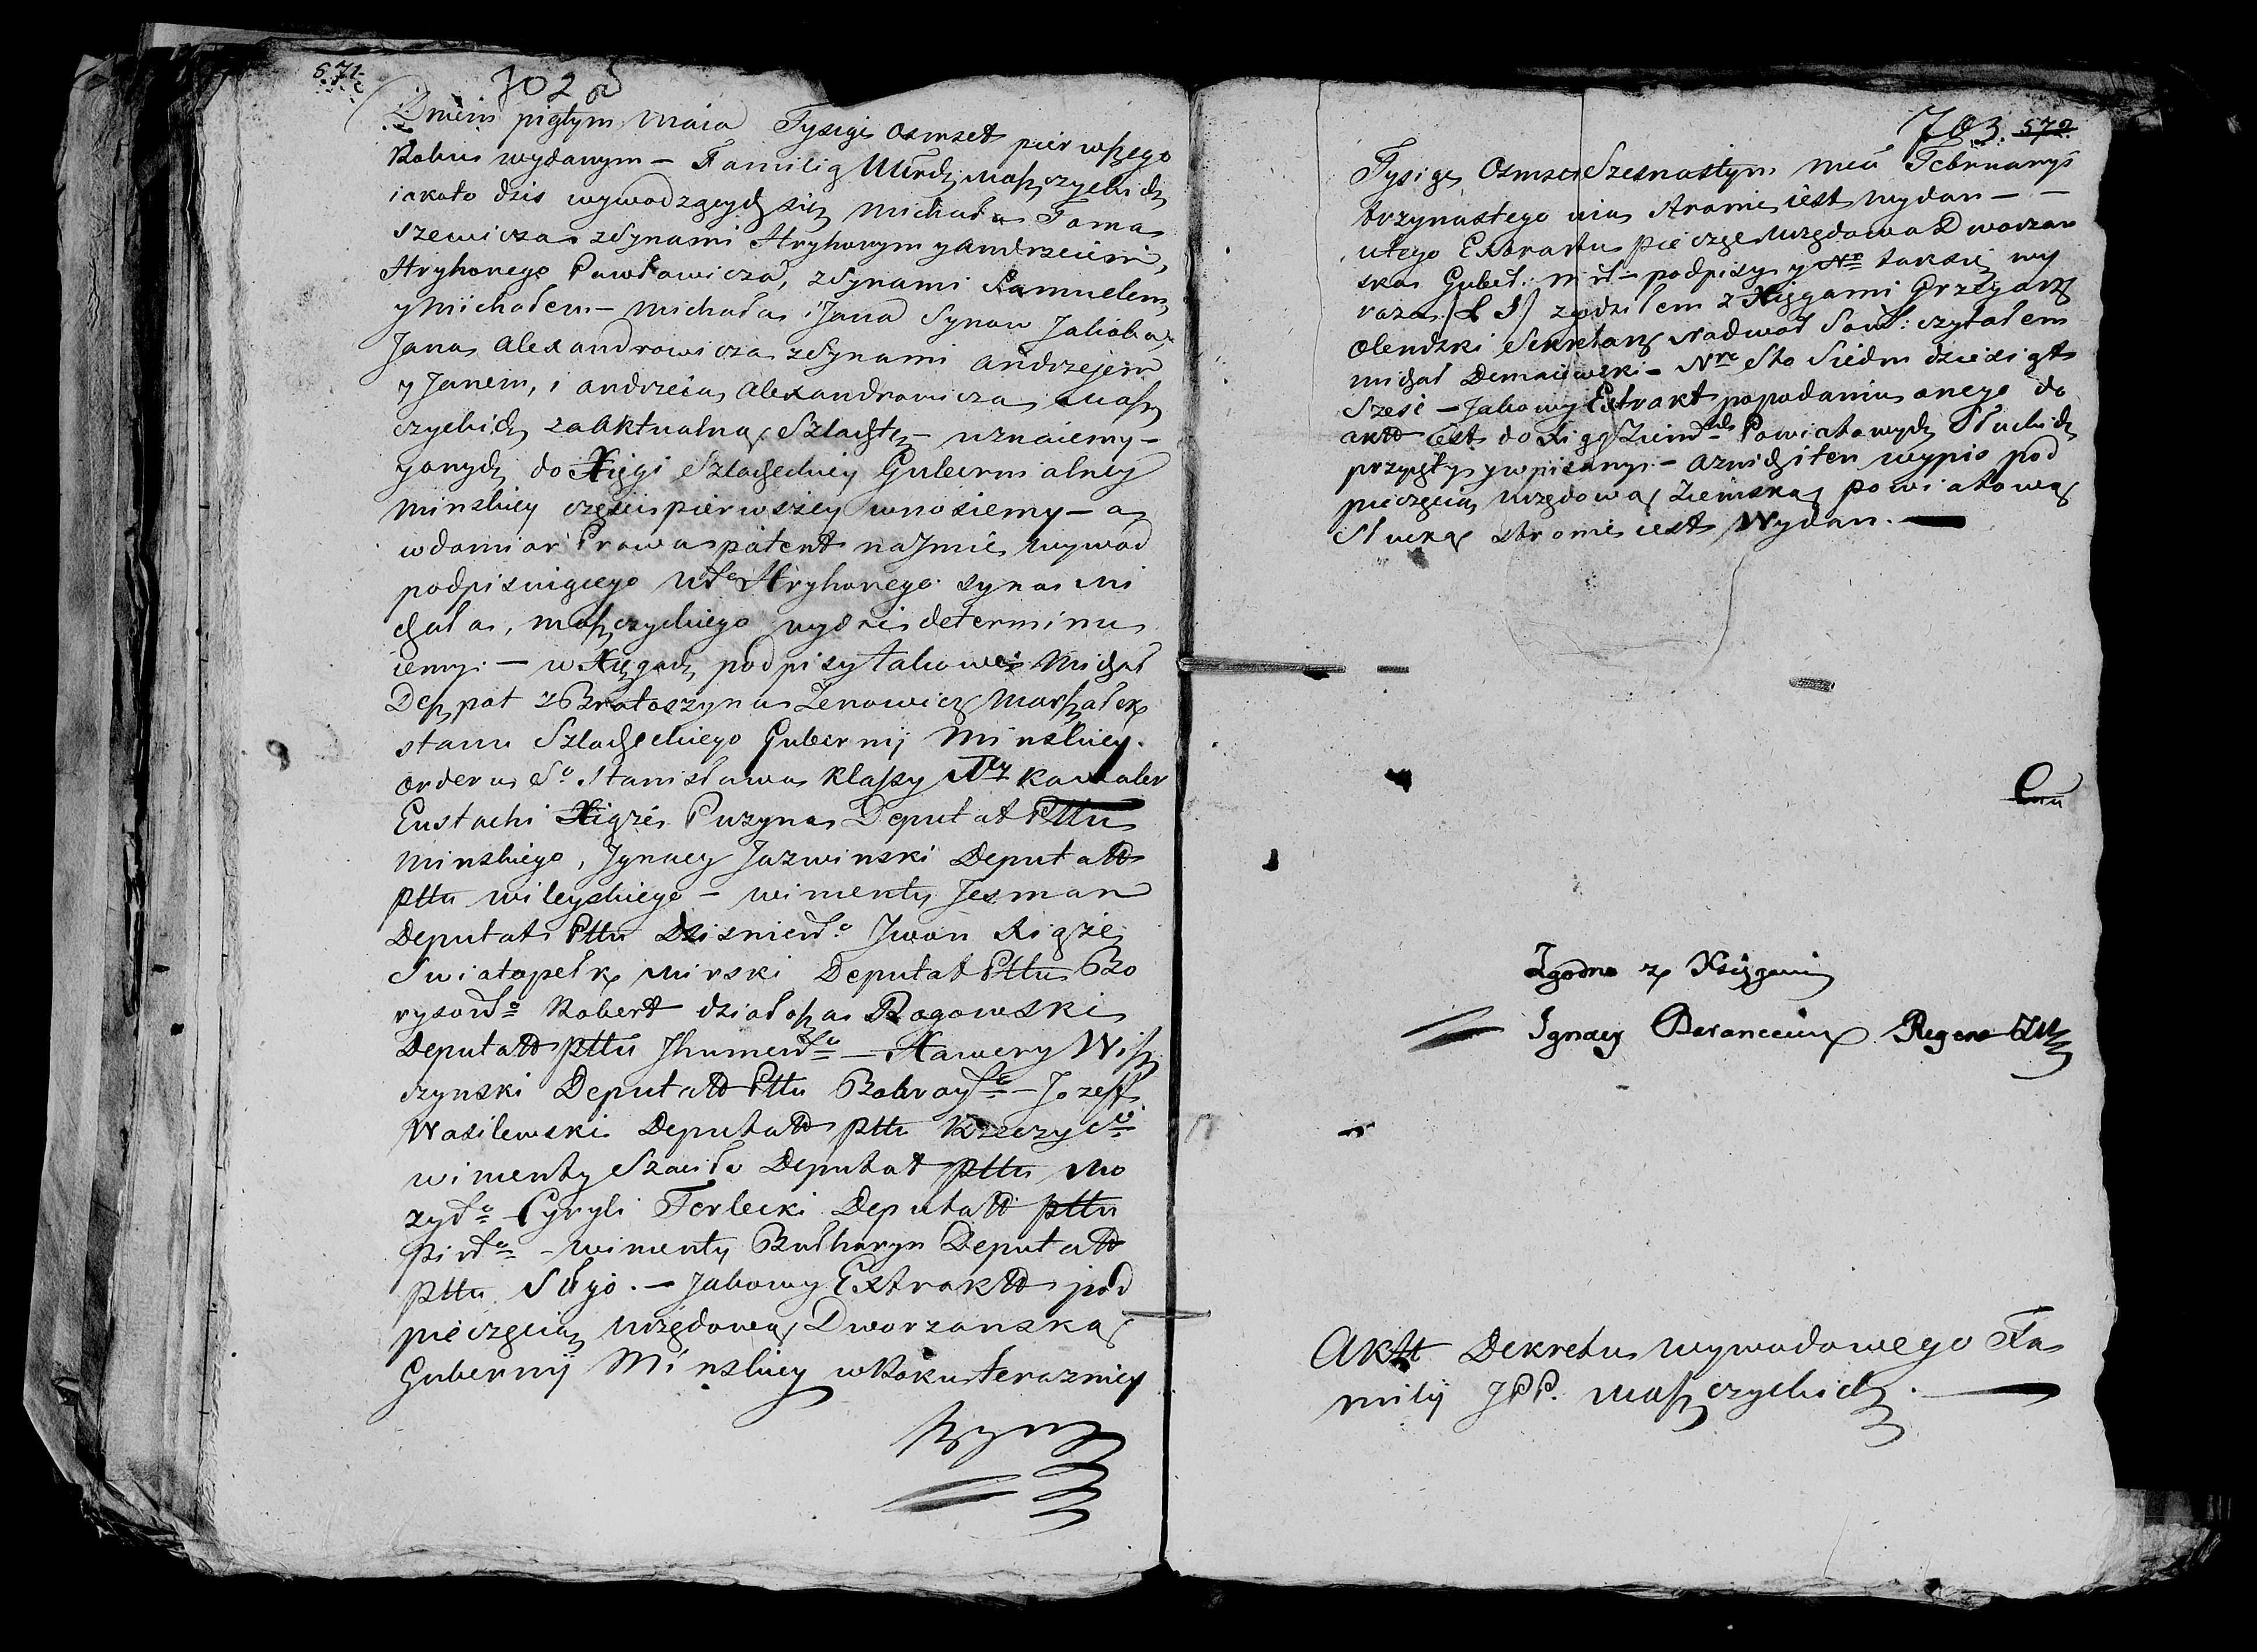 571.
702
Dniem piątym Maia Tysiąc Osmset pierwszego
Roku wydanym – Familią Urodz. Maszczyckich
iakoto dziś wywodzących się, Michała Toma
szewicza z Synami Hryhorym y Andrzeiem,
Hryhorego Pawłowicza, z Synami Samuelem,
y Michałem – Michała i Jana Synow Jakoba
Jana Alexandrowicza z Synami Andrzejem
y Janem, i Andrzeia Alexandrowicza Masz
czyckich za Aktualną Szlachtę – uznaiemy –
y onych do Xięgi Szlacheckiey Gubernialney
Minskiey częsci pierwszey wnosiemy – a
w domiar Prawa patent na Jmie wywod
podpisuiącego Ur. Hryhorego syna Mi
chała, Maszczyckiego wydać determinu
iemy. – w Xięgach podpisy takowe Michał
Deszpot z Bratoszyna Zenowicz Marszałek
stanu Szlacheckiego Gubernij Minskiey.
orderu So Stanisława klassy kawaler
Eustachi Xiąże Puzyna Deputat Pttu
Minskiego, Jgnacy Jazwinski Deputatt
pttu wileyskiego – wincenty Jesman
Deputat Pttu Dzisnieńo Jwan Xiąże
Swiatopełk Mirski Deputat Pttu Bo
rysowo Robert działosza Rogowski
Deputatt pttu Jhumeńo – Xawery Wisz
czynski Deputatt Pttu Bobruyo – Jozeff
Wasilewski Deputatt pttu Rzeczyco
wincenty Szaciło Deputat pttu Mo
zyro – Cyryli Terlecki Deputatt pttu
Pińo – wincenty Bułharyn Deputatt
pttu Słgo. – Jakowy Extraktt pod
pieczęcią Urzędową Dworzanską
Gubernij Minskiey w Roku terazniey
szym
703. 572.
Tysiąc Osmset Szesnastym mca Februarij
trzynastego dnia Stronie iest wydan –
u tego Extraktu pieczęc Urzędowa Dworzan
ska Gubeł: Miń – podpisy y Nr tak się wy
raza (L S) zgodziłem z Xięgami Grzegorz
Olendzki Sekretarz Nadwoł Sowł: czytałem
Michał Demaiewski – Nro Sto Siedmdziesiąt
Szesc – Jakowy Extrakt po podaniu onego do
aktt iest do Xiąg Ziemł Powiatowych Słuckich
przyięty y wpisany. – a z nich i ten wypis pod
pieczęcią Urzędową Ziemską powiatową
Słucką stronie iest Wydan. –
Zgodno z Xsięgami
Ignacy Regent
Aktt Dekretu wywodowego Fa
milij JPP. Maszczyckich. –